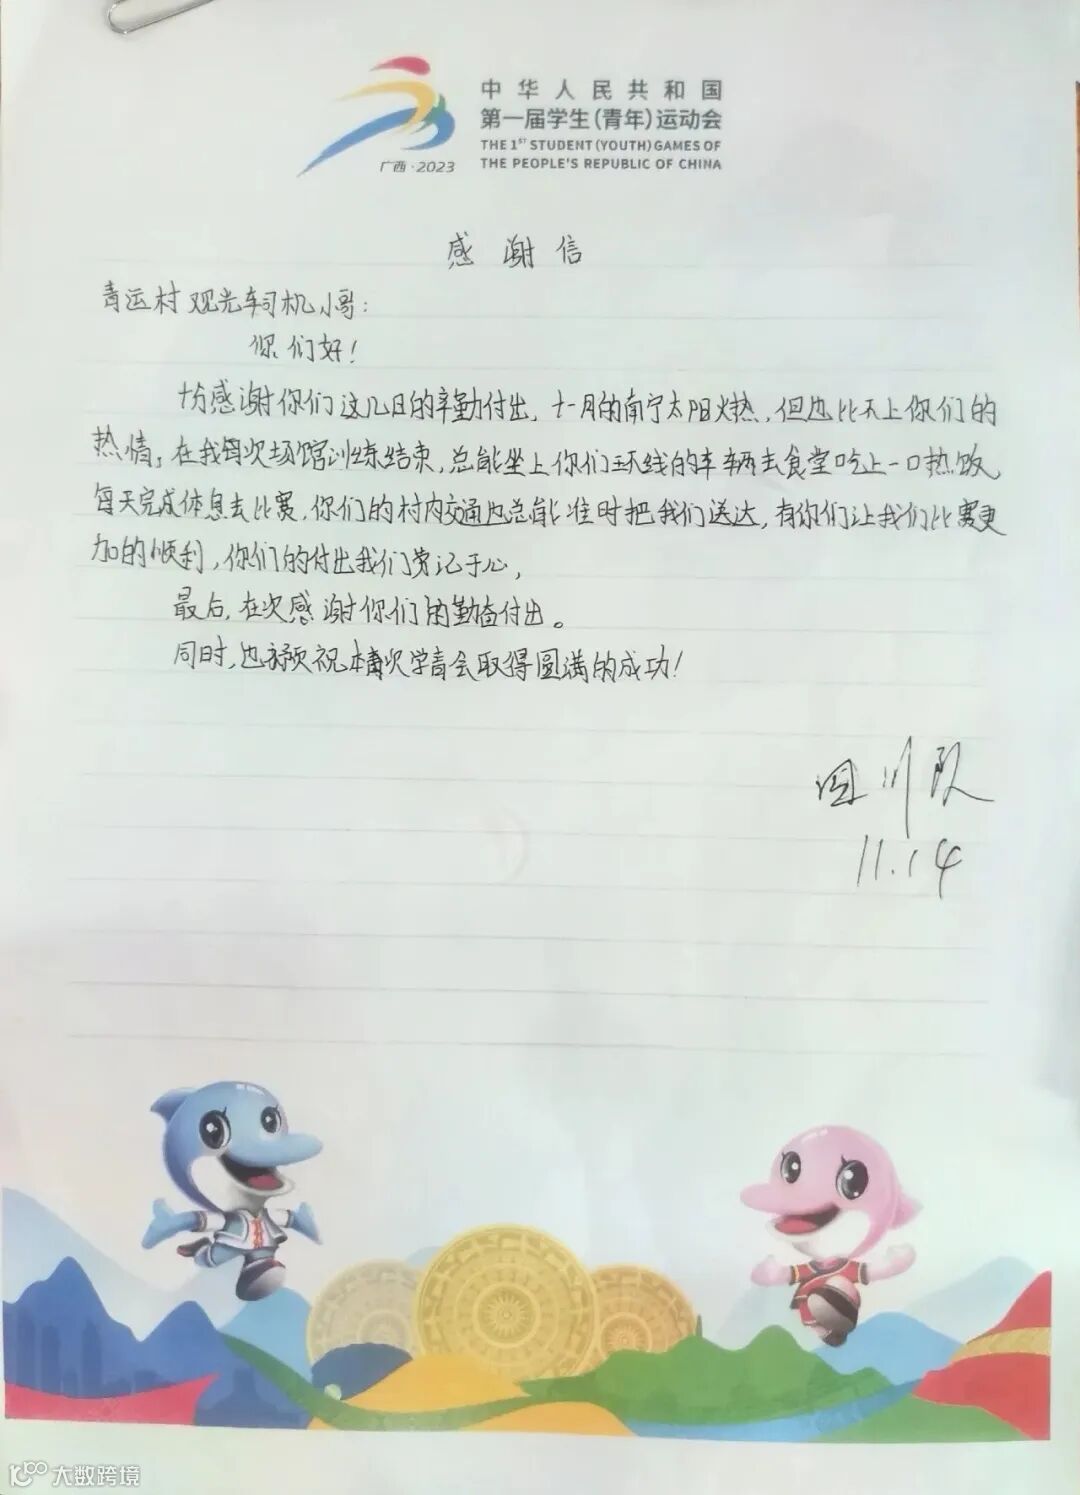 中华人民共和国
第一届学生(青年)运动会
THE 1ST STUDENT (YOUTH) GAMES OF
THE PEOPLE'S REPUBLIC OF CHINA
广西·2023
感谢信
青运村观光车司机小哥:
你们好!
十分感谢你们这几日的辛勤付出,十一月的南宁太阳火热,但也比不上你们的
热情,在我每次场馆训练结束,总能坐上你们环线的车辆去食堂吃上一口热饭
每天完成休息去比赛,你们的村内交通也总能准时把我们送达,有你们让我们比赛更
加的顺利,你们的付出我们常记于心,
最后,在次感谢你们的勤奋付出。
同时,也预祝本次学青会取得圆满的成功!
四川队
11.14
大数跨境